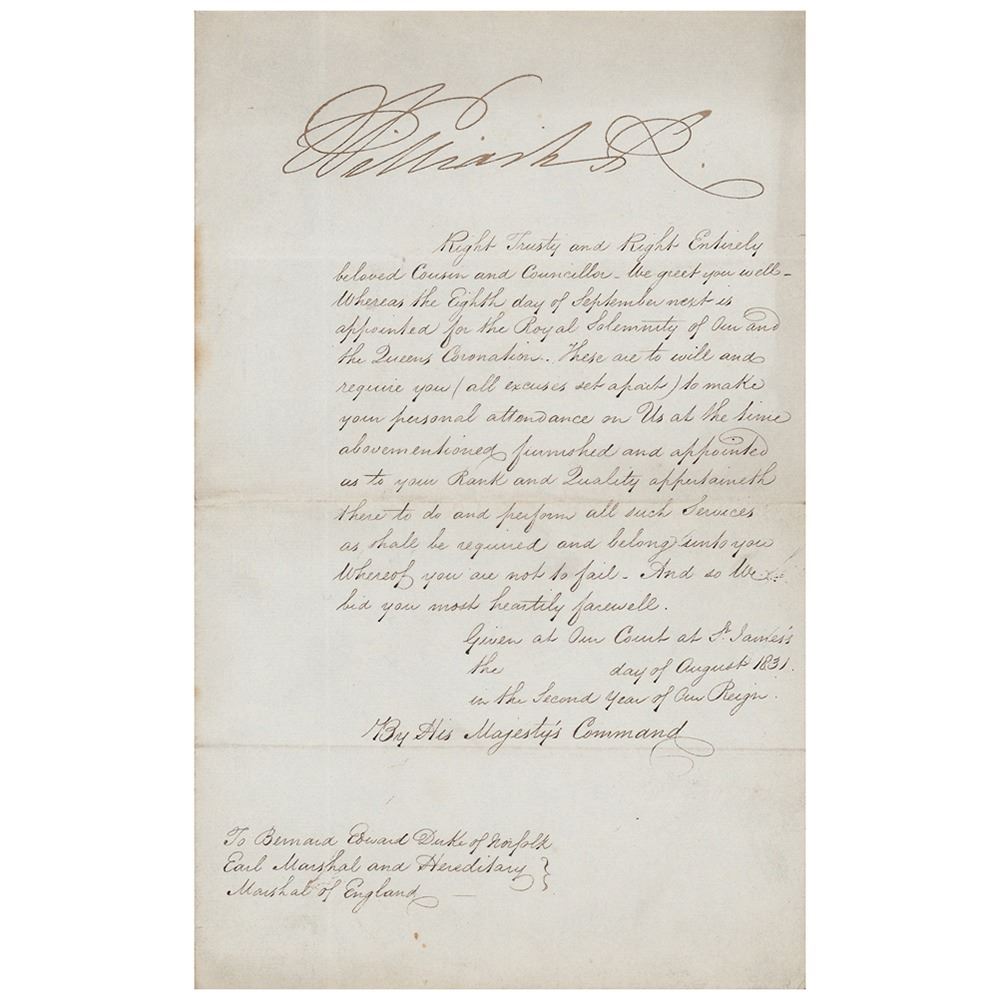 William R.
Right Trusty and Right Entirely
beloved Cousin and Councillor - We greet you well -
Whereas the Eighth day of September next is
appointed for the Royal Solemnity of Our and
the Queens Coronation .. These are to will and
require you (all excuses set apart) to make
your personal attendance on Us at the time
abovementioned furnished and appointed
as to your Rank and Quality appertaineth
there to do and perform all such Services
as shall be required and belong unto you
Whereof you are not to fail - And so We
bid you most heartily farewell.
Given at Our Court at St. James's
the day of August 1831.
in the Second Year of Our Reign.
By His Majesty's Command
To Bernard Edward Duke of Norfolk
Earl Marshal and Hereditary
Marshal of England